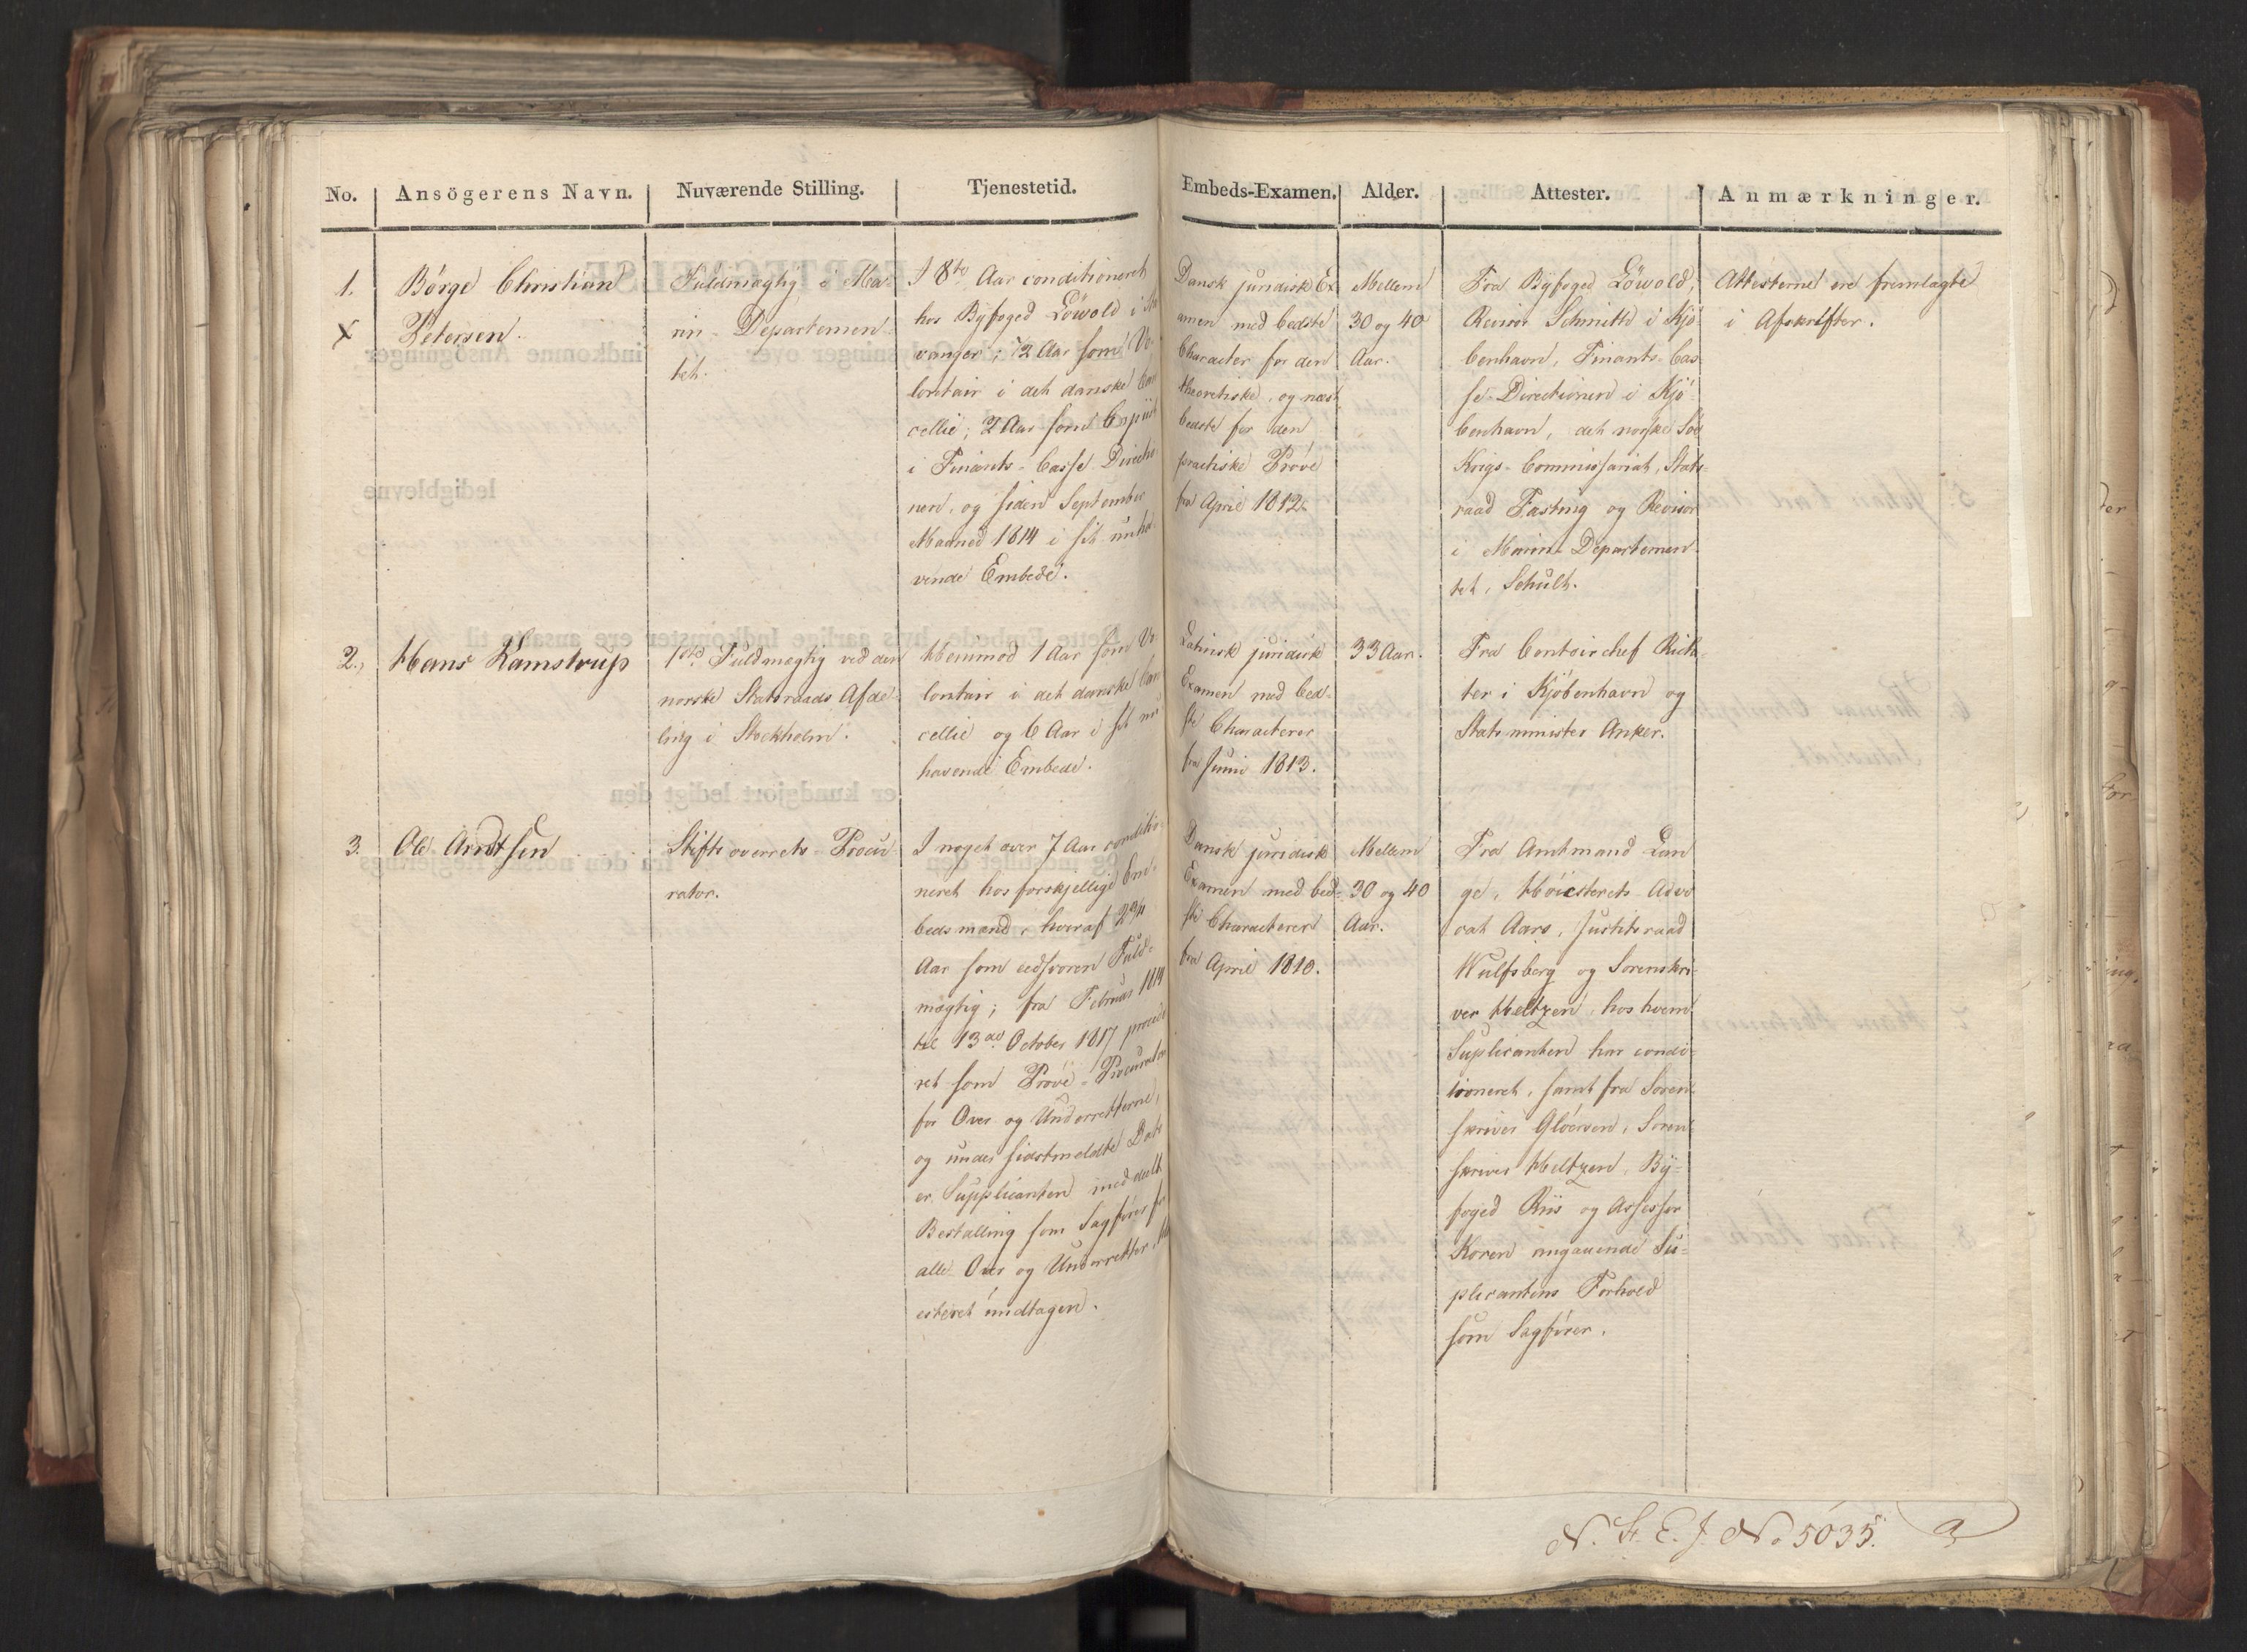 No. Ansögerens Navn. Nuværende Stilling. Tjenestetid. Embeds-Examen. Alder. Attester. Anmærkninger.
1.
X
Börge Christian
Petersen.
Fuldmægtig i Ma-
rin-Departemen-
tet.
I 8te Aar conditioneret
hos Byfoged Löwold i
vanger; 2 Aar som Vo-
lontair i det danske Can
cellie; 2 Aar som Copiist
i Finants-Casse-Directio-
nen, og siden September
Maaned 1814 i sit
vende Embede.
Dansk juridisk Ex
amen med bedste
Character for den
theoretiske, og næst
bedste for den
practiske Pröve
fra April 1812.
Mellem
30 og 40
Aar.
Fra Byfoged Löwold,
Revisor Schmitto i Kjö-
benhavn, Finants-Cas-
se-Directionen i Kjö-
benhavn, det norske Söe
Krigs-Commissariat, Stats-
raad Fasting og Revisor
i Marine-Departemen-
tet, Schult.
Attesterne ere fremlagte
i Afskrifter.
2.,
Hans Kamstrup
1ste Fuldmægtig ved den
norske Statsraads Afde-
ling i Stockholm.
Henimod 1 Aar som Vo-
lontair i det danske Can
cellie og 6 Aar i sit nu
havende Embede.
Latinsk juridisk
Examen med bed-
ste Characterer
fra Juni 1813.
33 Aar.
Fra Contoirchef Rich-
ter i Kjöbenhavn og
Statsminister Anker.
3.
Ole Arndtsen
Stiftsoverrets-Procu
rator.
I noget over 7 Aar conditio-
neret hos forskjellige Em-
bedsmænd, hvoraf 2 3/4
Aar som eedsvoren Fuld-
mægtig; fra Februar 1814
til 13de October 1817 procede
ret som Pröve-Procurator
for Over og Underretterne,
og under sidstmeldte Dato
er Supplicanten meddeelt
Bestalling som Sagförer for
alle Over og Underretter,
esteret undtagen.
Dansk juridisk
Examen med bed-
ste Characterer
fra April 1810.
Mellem
30 og 40
Aar.
Fra Amtmand Lan
ge, Höiesterets-Advo
cat Aars, Justitsraad
Wulfsberg og Sorenskri-
ver Heltzen, hos hvem
Suplicanten har condi-
tioneret, samt fra Soren-
skriver Glöersen, Soren-
skriver Heltzen, By-
foged Riis og Assessor
Koren angaaende Su-
plicantens Forhold
som Sagförer.
N. St. E. J. No 5035. a